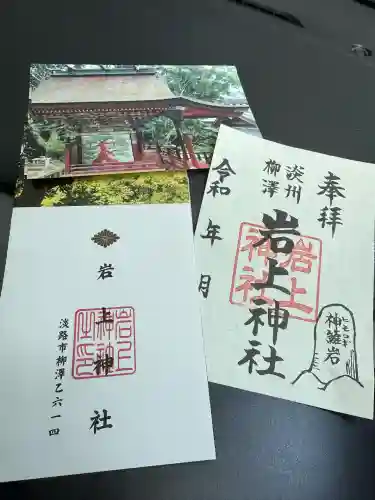 奉拝
淡州
柳澤
岩上神社
岩上
神社
令和 年 月
ヒモロギ
神籬岩
岩上神社
岩上
神社
淡路市柳澤乙六一四